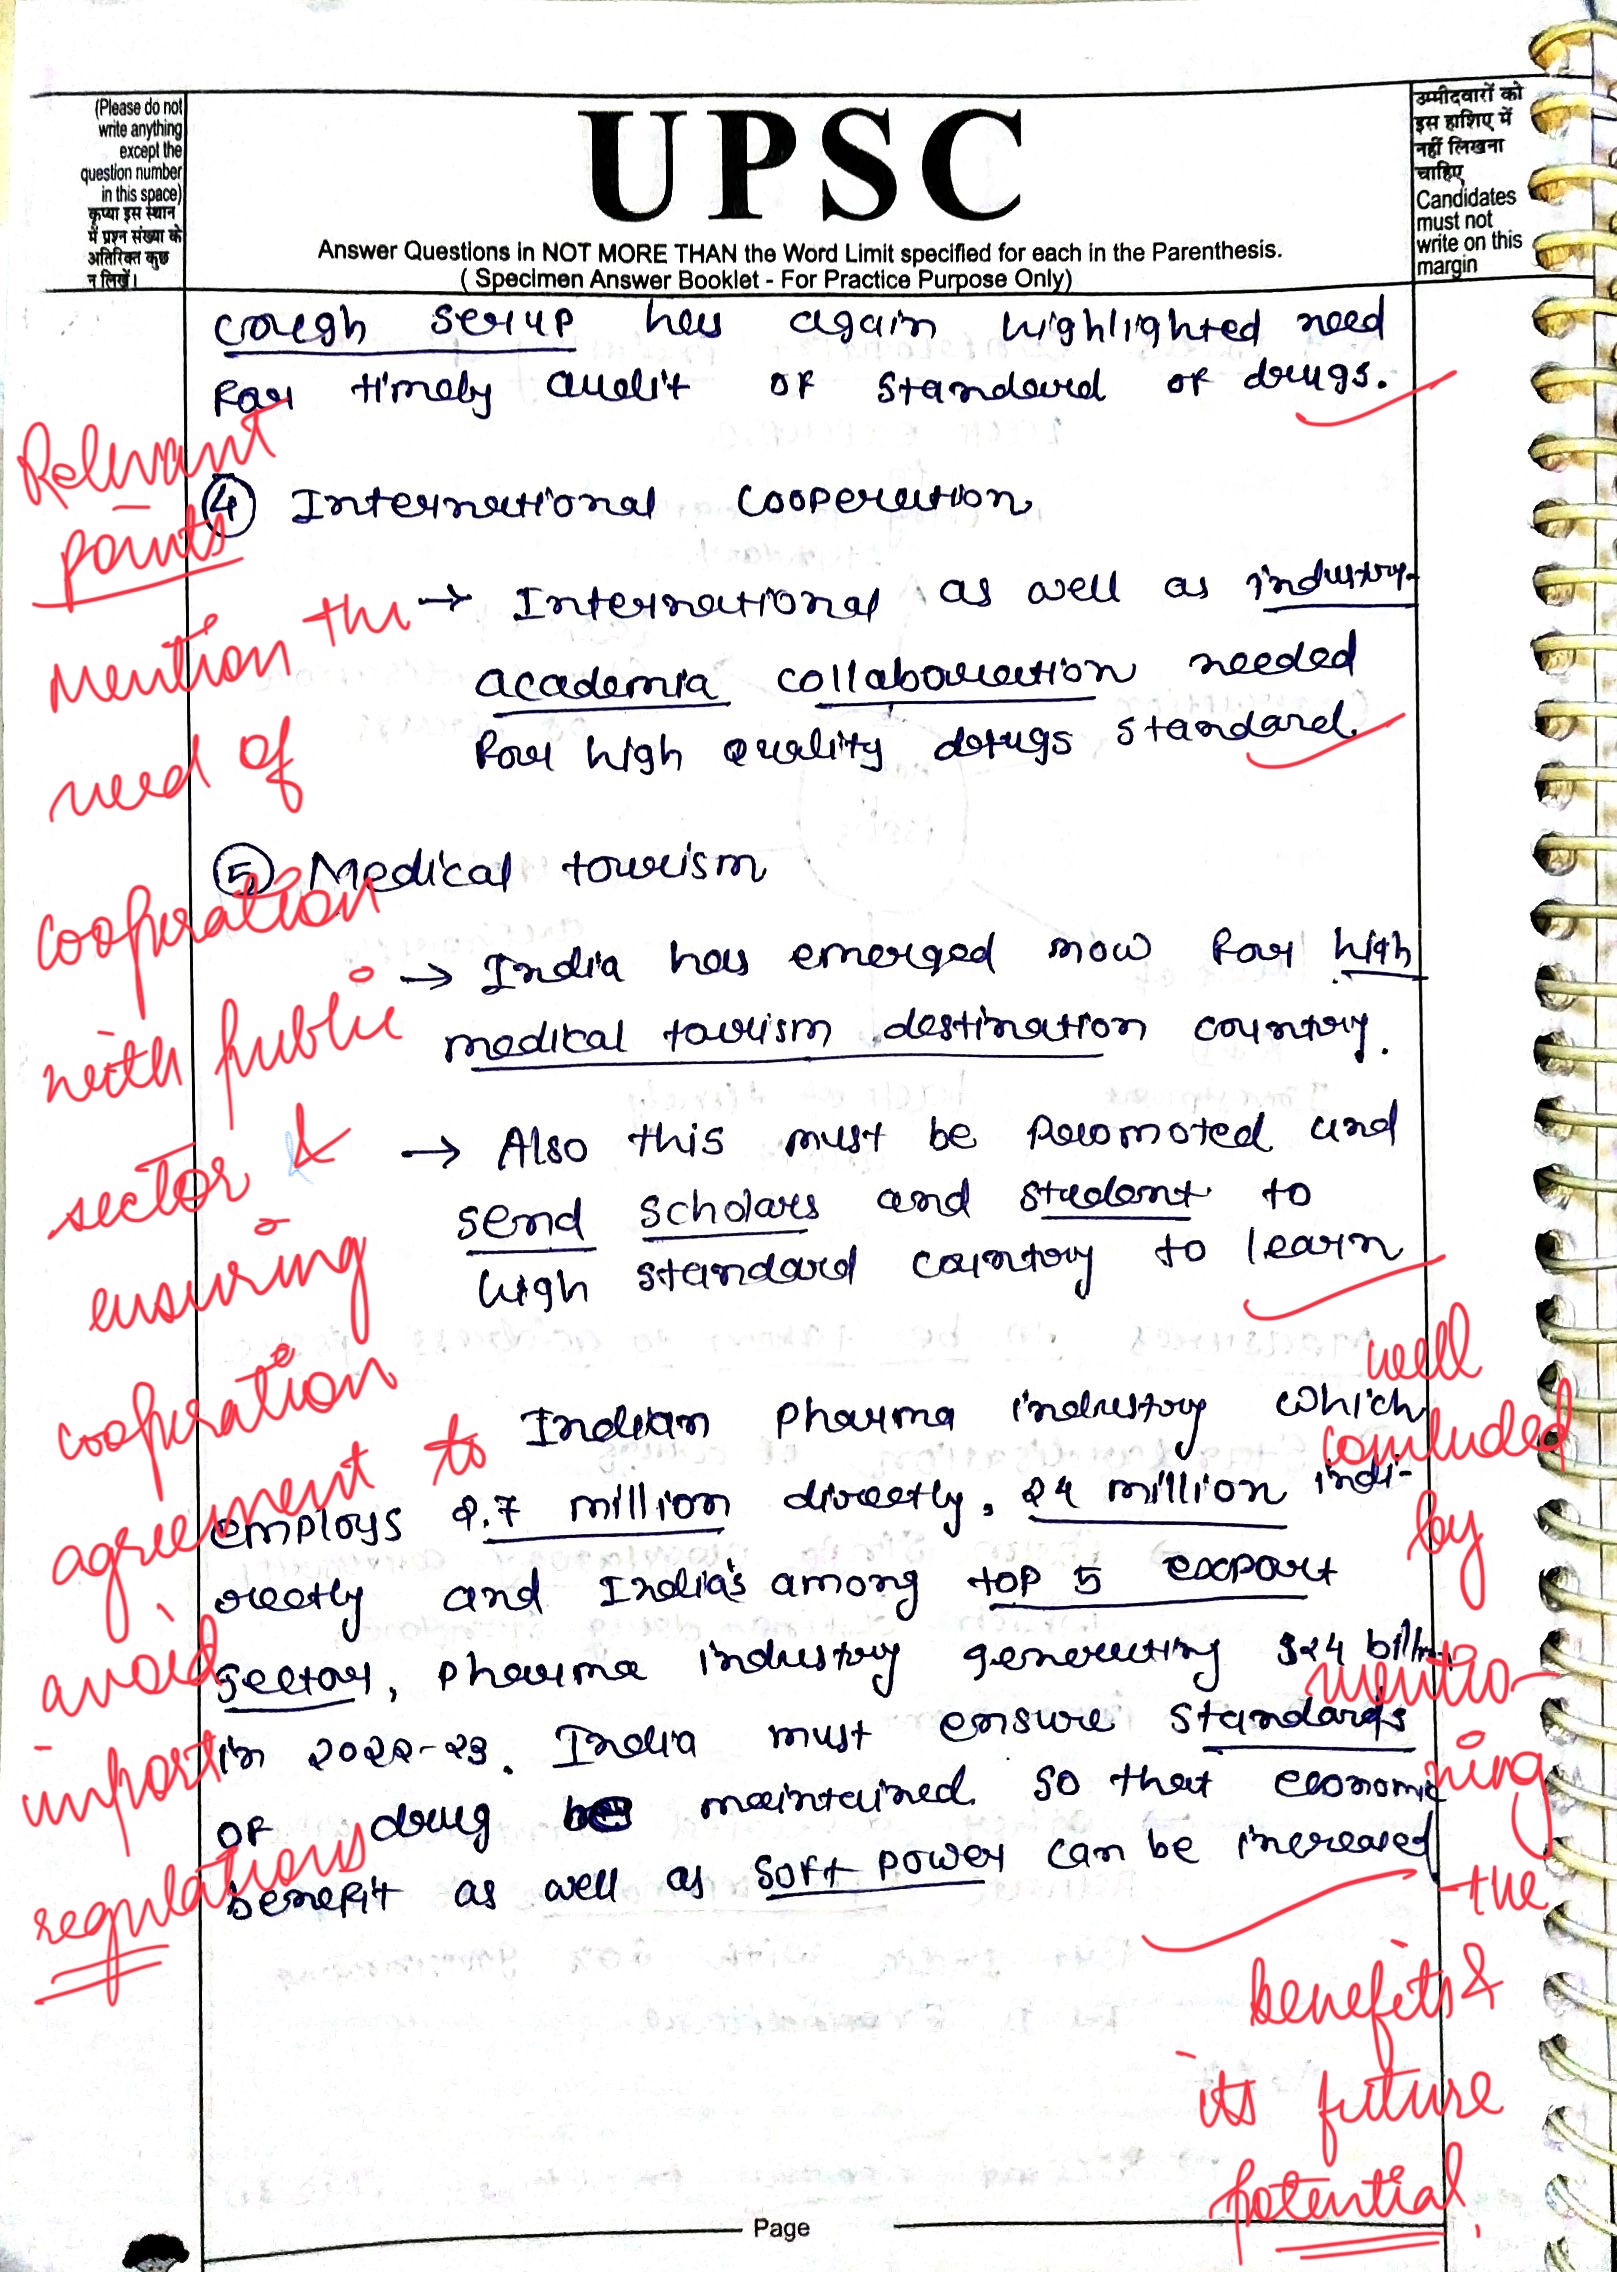 (Please do not
write anything
except the
question number
in this space)
कृप्या इस स्थान
में प्रश्न संख्या के
अतिरिक्त कुछ
न लिखें।
UPSC
Answer Questions in NOT MORE THAN the Word Limit specified for each in the Parenthesis.
( Specimen Answer Booklet - For Practice Purpose Only)
उम्मीदवारों को
इस हाशिए में
नहीं लिखना
चाहिए
Candidates
must not
write on this
margin
cough serup has again highlighted need
for timely audit of standard of drugs.
4 International cooperation
→ International as well as industry-
academia collaboration needed
for high quality drugs standard.
5 Medical tourism
→ India has emerged now for high
medical tourism destination country.
→ Also this must be promoted and
send scholars and student to
high standard country to learn
Indian pharma industry which
employs 2.7 million directly, 24 million indi-
rectly and India's among top 5 export
sector, pharma industry generating $24 billn
in 2022-23. India must ensure standards
of drug be maintained so that economic
benefit as well as soft power can be increased
Relevant
points
Mention the
need of
cooperation
with public
sector &
ensuring
cooperation
agreement to
avoid
import
regulations
well
concluded
by
mentio-
ning
the
benefits &
its future
potential.
Page